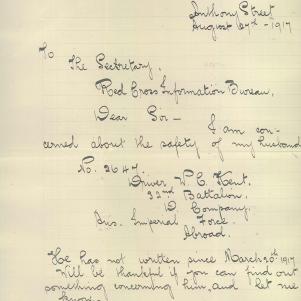 Anthony Street
August 27th - 1917
To
The Secretary.
Red Cross Information Bureau.
Dear Sir -
I am con-
cerned about the safety of my husband
No. 2647
Driver W. C. Kent.
22nd Battalion.
D Company.
Aus. Imperial Force.
Abroad.
He has not written since March 20th 1917
Will be thankful if you can find out
something concerning him, and let me
know.